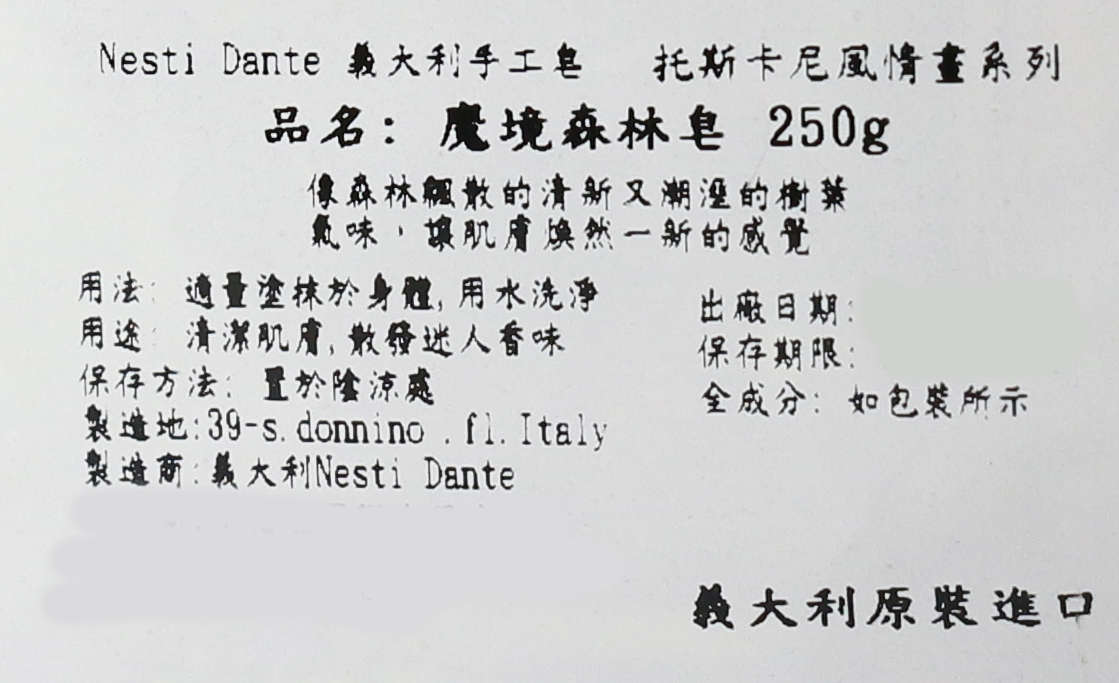 Nesti Dante 義大利手工皂 托斯卡尼風情畫系列
品名: 魔境森林皂 250g
像森林飄散的清新又潮溼的樹葉
氣味，讓肌膚煥然一新的感覺
用法: 適量塗抹於身體,用水洗淨
用途: 清潔肌膚,散發迷人香味
保存方法: 置於陰涼處
製造地:39-s.donnino .fl.Italy
製造商:義大利Nesti Dante
出廠日期:
保存期限:
全成分: 如包裝所示
義大利原裝進口